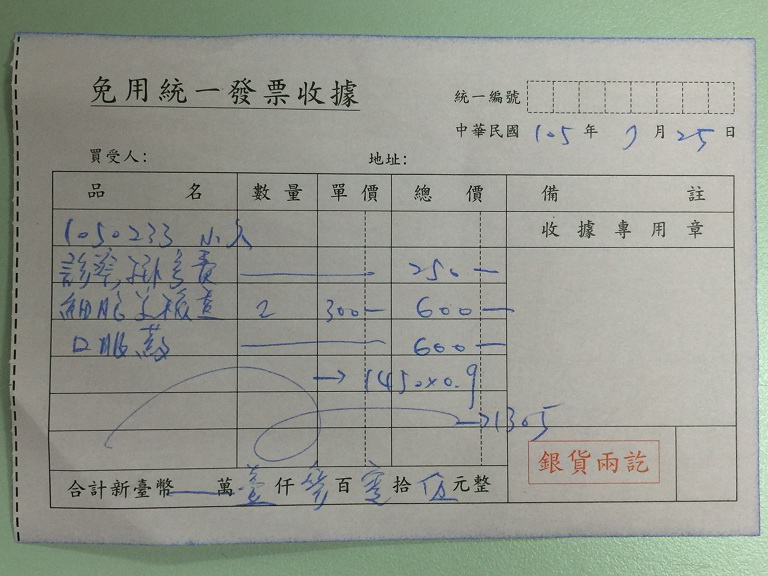 免用統一發票收據
統一編號
中華民國 105 年 7 月 25 日
買受人： 地址：
品名 數量 單價 總價 備註
收據專用章
1050233
診察,掛號費 250
細胞學檢查 2 300 600
口服藥 600
→ 1450×0.9
→1305
銀貨兩訖
合計新臺幣 萬 壹 仟 參 百 零 拾 伍 元整